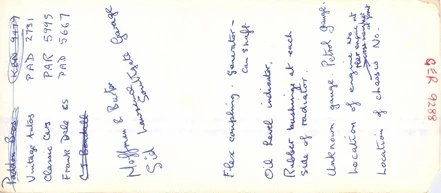 Vintage Autos PAD 2731
Classic Cars PAR 5995
Frank Dale &s PAD 5667
Hoffman & Burton
Sid Lawrence Garage
Flex coupling. Generator -
Cam shaft
Oil level indicator.
Rubber bushings at each
side of radiator.
Unknown gauge. Petrol gauge.
Location of engine No.
Location of chassis No.
GER 9288